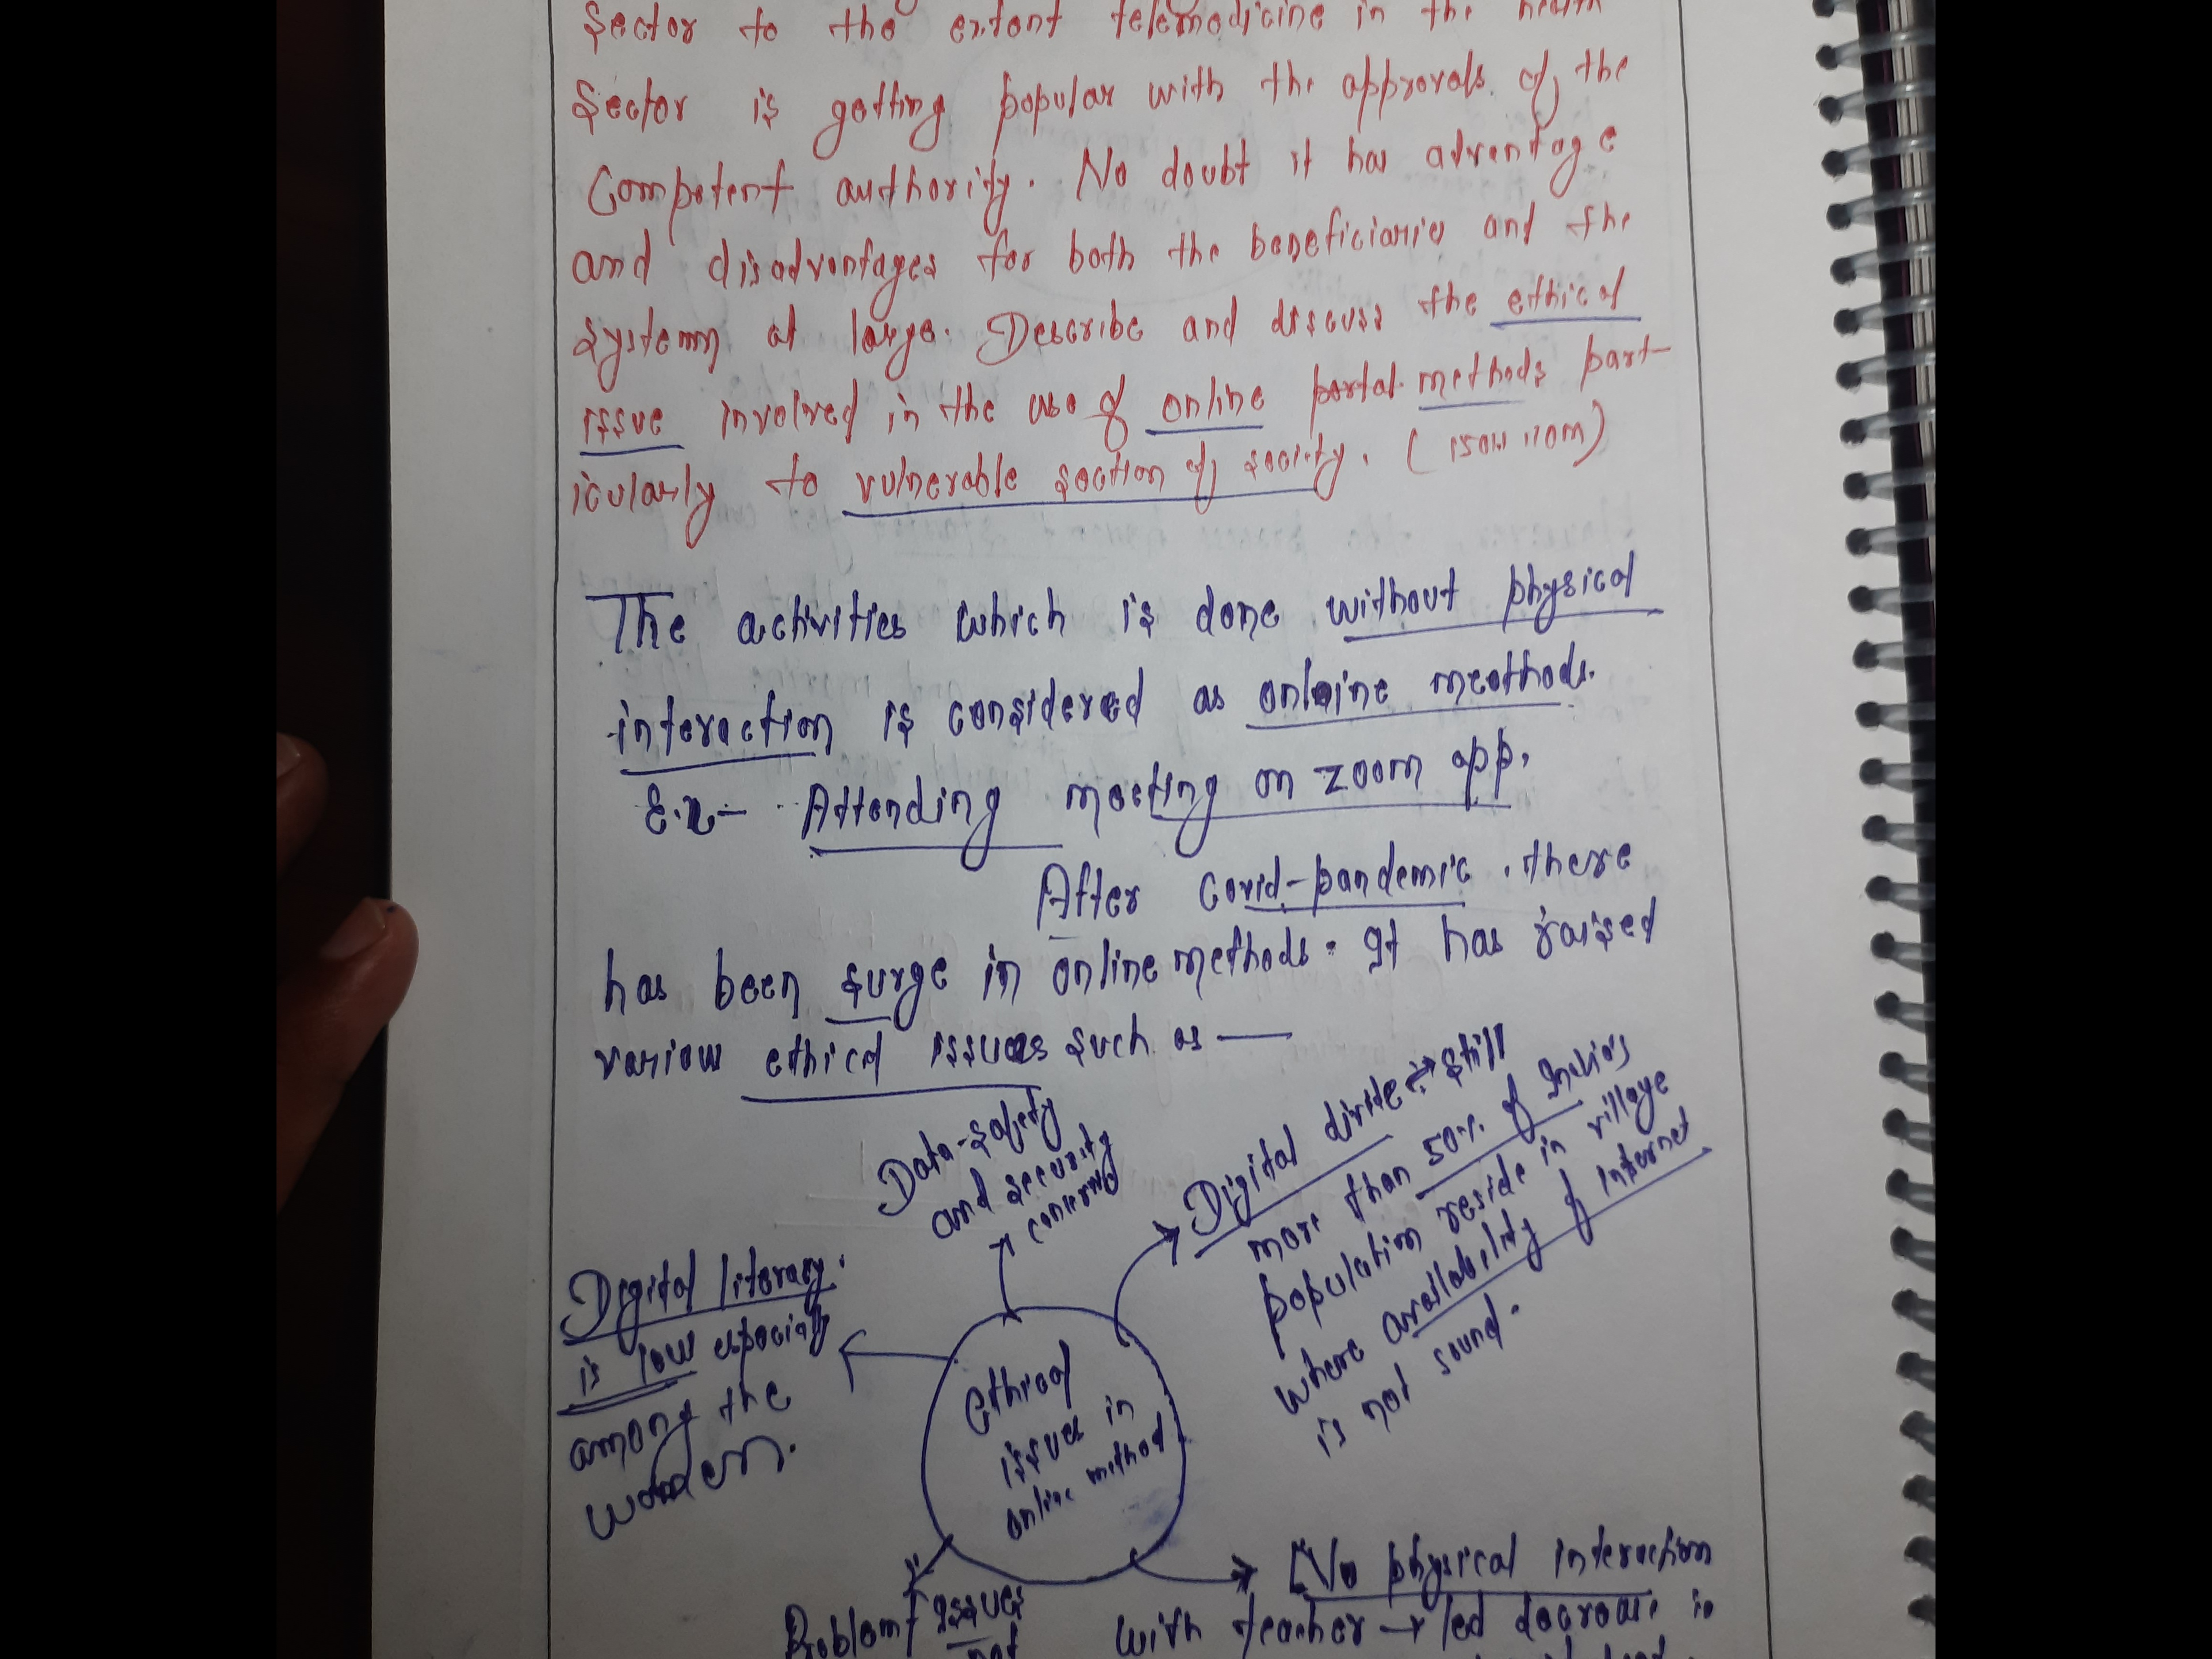 Sector to the extent telemedicine in the health
Sector is getting popular with the approvals of the
Competent authority. No doubt it has advantage
and disadvantages for both the beneficiaries and the
system at large. Describe and discuss the ethical
issue involved in the use of online portal methods part-
icularly to vulnerable section of society. (150W 10M)
The activities which is done without physical
interaction is considered as online meethods.
Ex- Attending meeting on zoom app.
After Covid-pandemic, there
has been surge in online methods. It has raised
various ethical issues such as —
Data-safety
and security
concerns
Digital divide → still
more than 50% of India's
population reside in village
where availability of internet
is not sound.
Digital literacy
is low especially
among the
women.
Ethical
issues in
online method
No physical interaction
with teacher → led decrease in
Problem/Issues
not